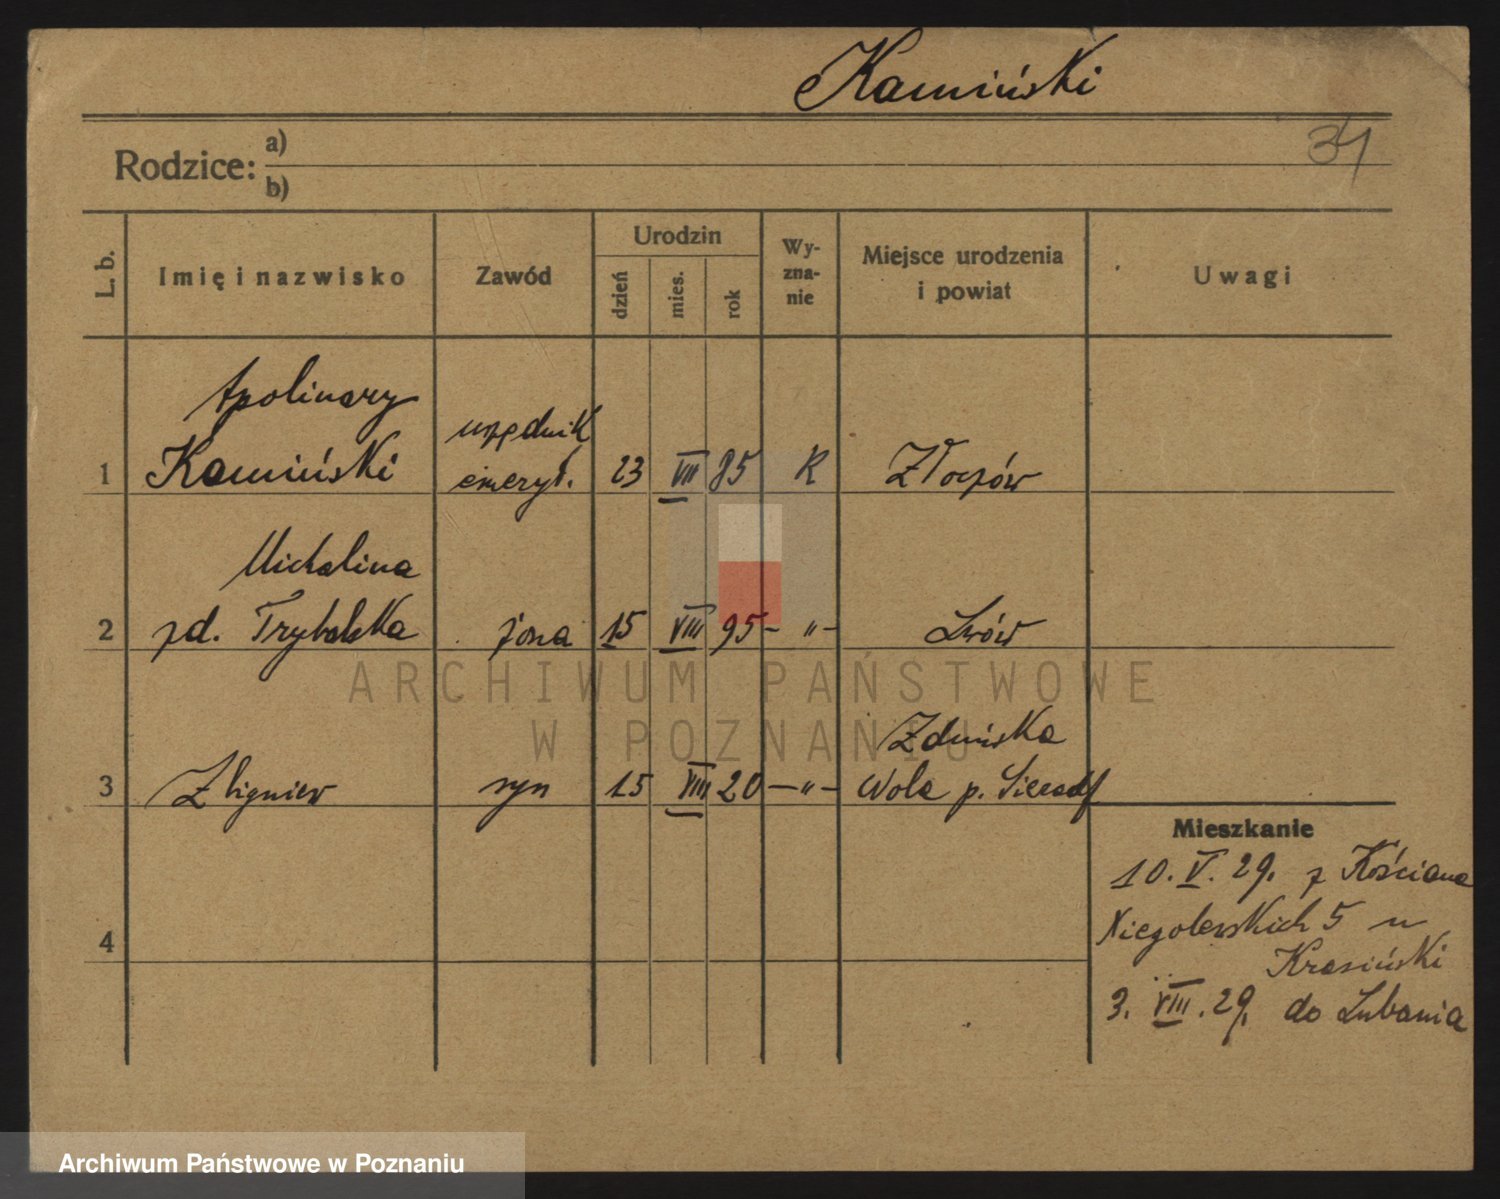 Kamiński
34
Rodzice: a)
b)
L. b. Imię i nazwisko Zawód Urodzin dzień mies. rok Wy-zna-nie Miejsce urodzenia i powiat Uwagi
Apolinary
urzędnik
1 Kamiński emeryt. 23 VII 85 R Złoczów
Michalina
2 zd. Trybalska żona 15 VIII 95 - „ - Lwów
ARCHIWUM PAŃSTWOWE
W POZNANIU
Zduńska
3 Zbigniew syn 15 VIII 20 - „ - Wola p. Sieradz
Mieszkanie
10. V. 29. z Kościana
Niegolewskich 5 u
4
Krasiński
3. VIII. 29. do Lubania
Archiwum Państwowe w Poznaniu